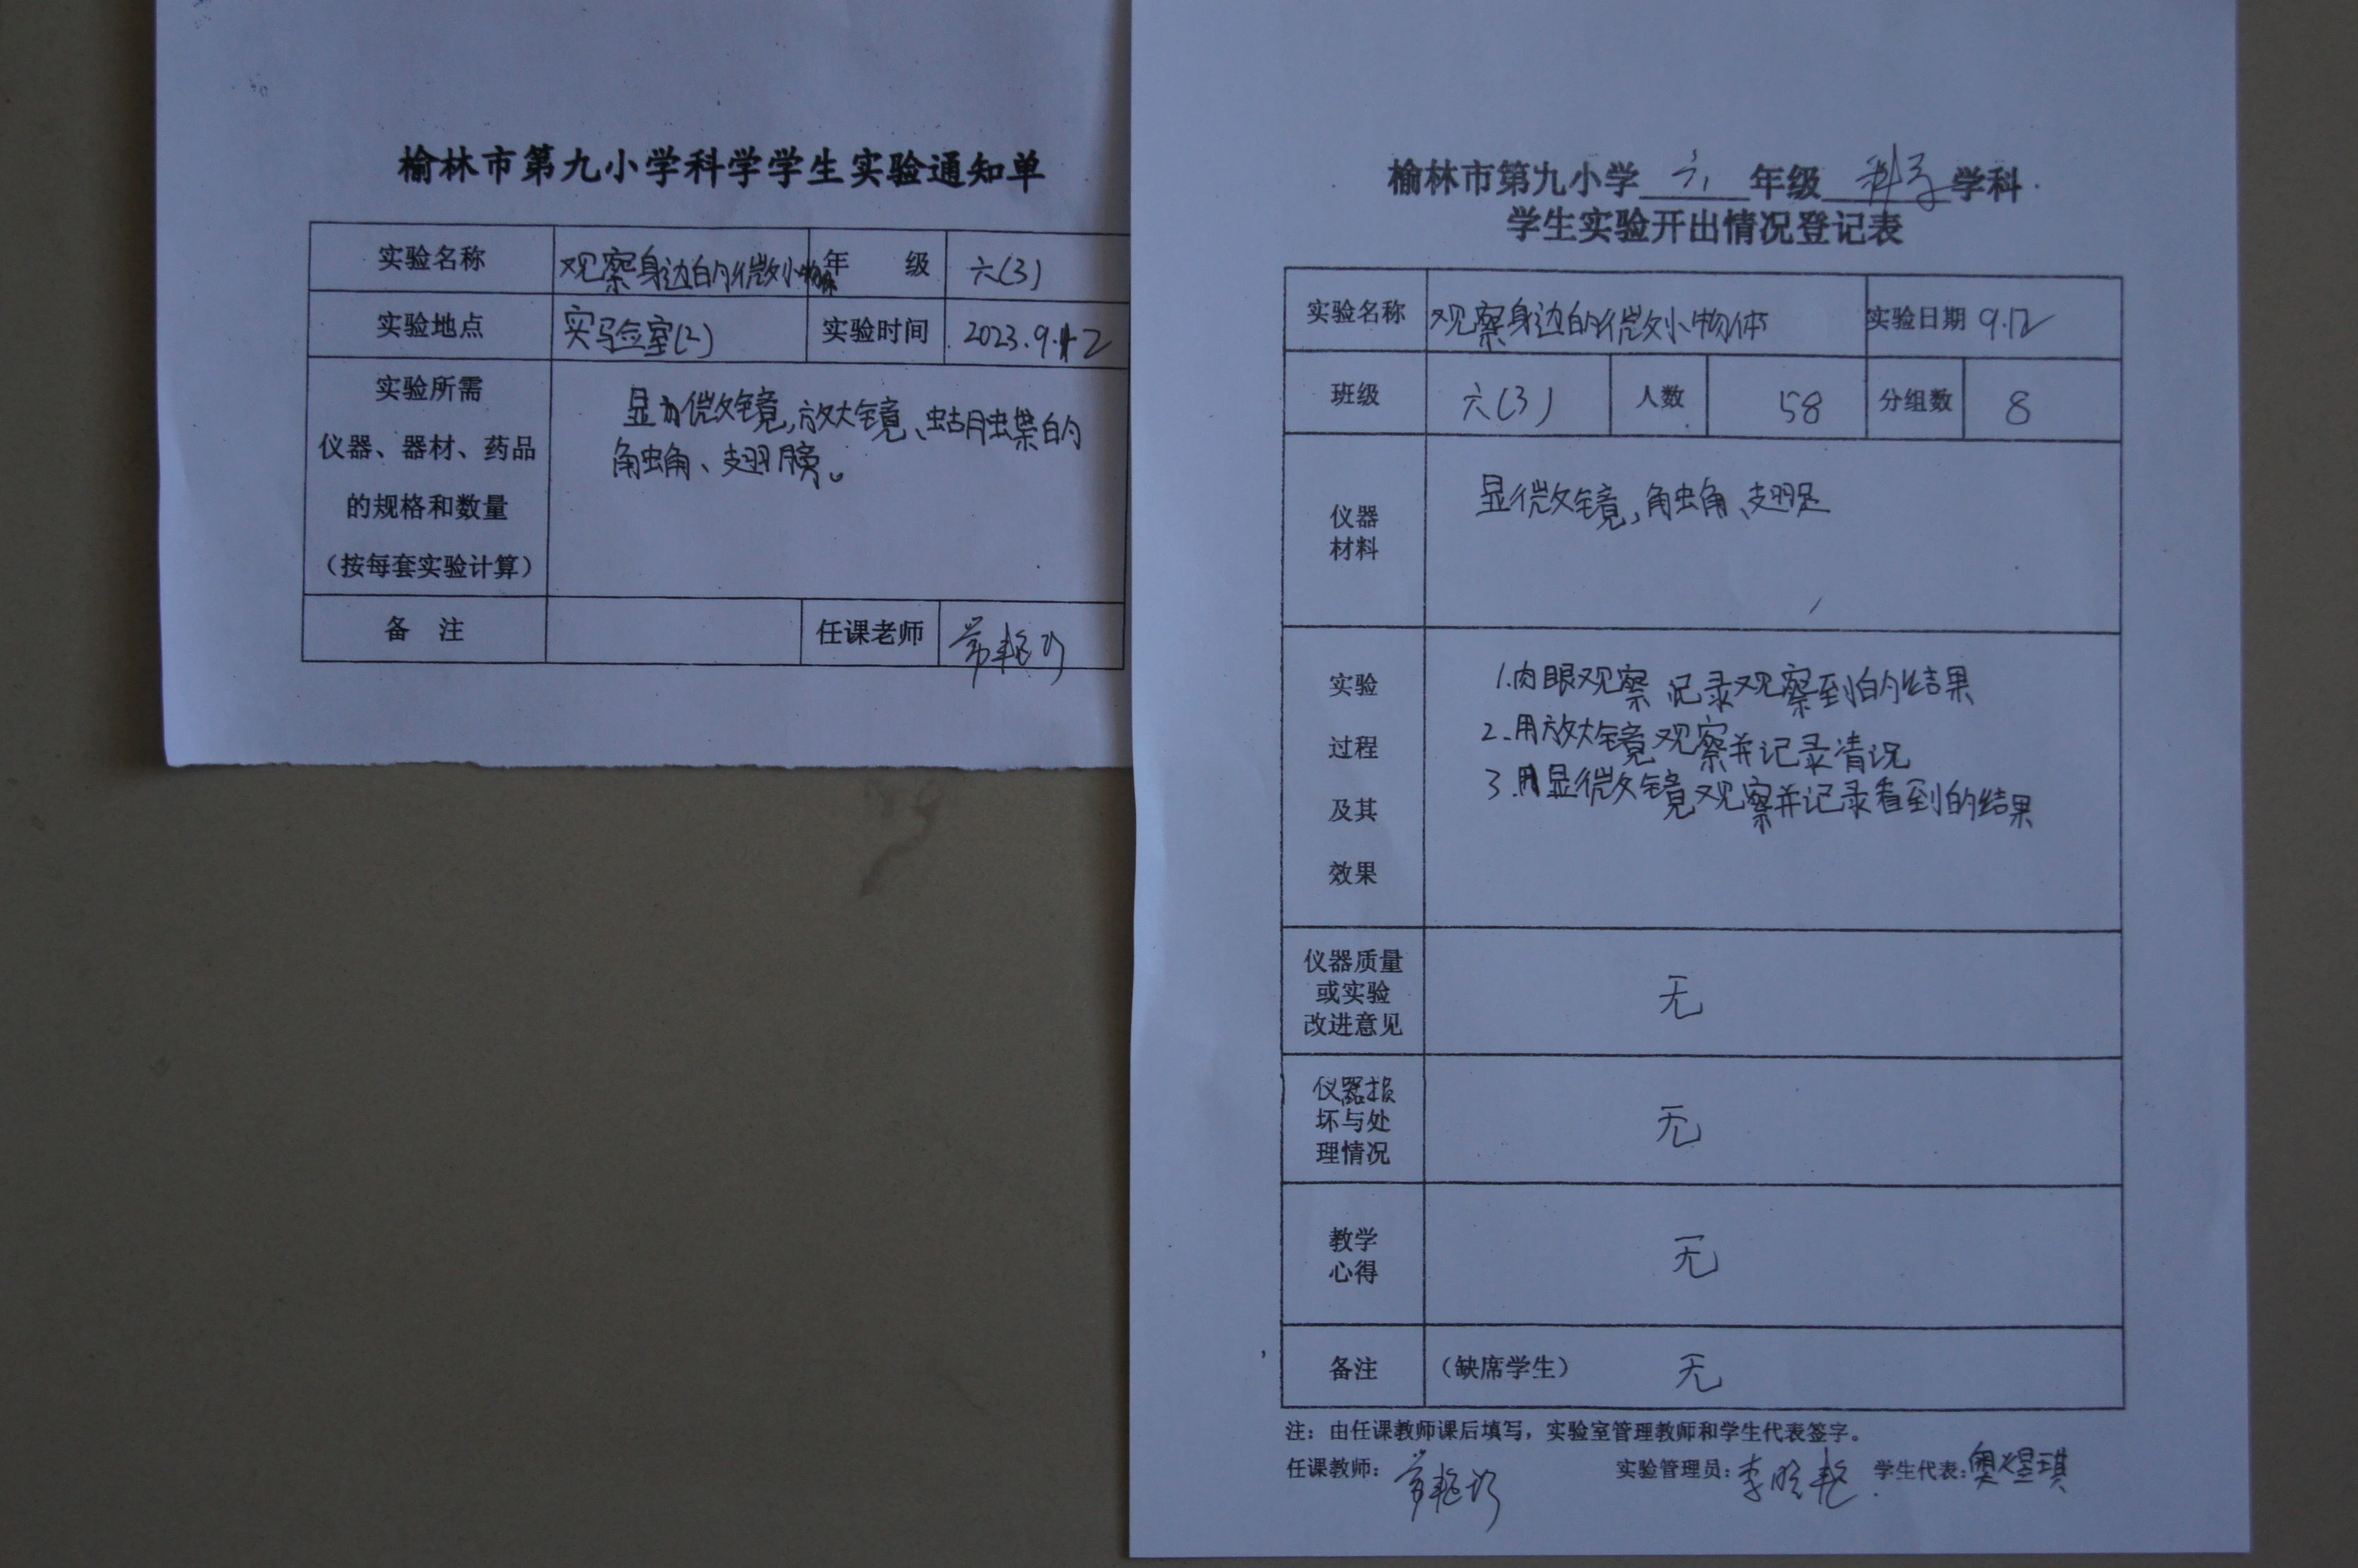 榆林市第九小学科学学生实验通知单
实验名称 观察身边的微小物体 年 级 六(3)
实验地点 实验室(2) 实验时间 2023.9.12
实验所需
仪器、器材、药品
的规格和数量
（按每套实验计算）
显微镜,放大镜、蝴蝶的
触角、翅膀。
备 注 任课老师
榆林市第九小学 六 年级 科学 学科
学生实验开出情况登记表
实验名称 观察身边的微小物体 实验日期 9.12
班级 六(3) 人数 58 分组数 8
仪器
材料
显微镜,角触角、翅足
实验
过程
及其
效果
1.肉眼观察 记录观察到的结果
2.用放大镜观察并记录情况
3.用显微镜观察并记录看到的结果
仪器质量
或实验
改进意见
无
仪器损
坏与处
理情况
无
教学
心得
无
备注 （缺席学生） 无
注：由任课教师课后填写，实验室管理教师和学生代表签字。
任课教师： 实验管理员： 学生代表：